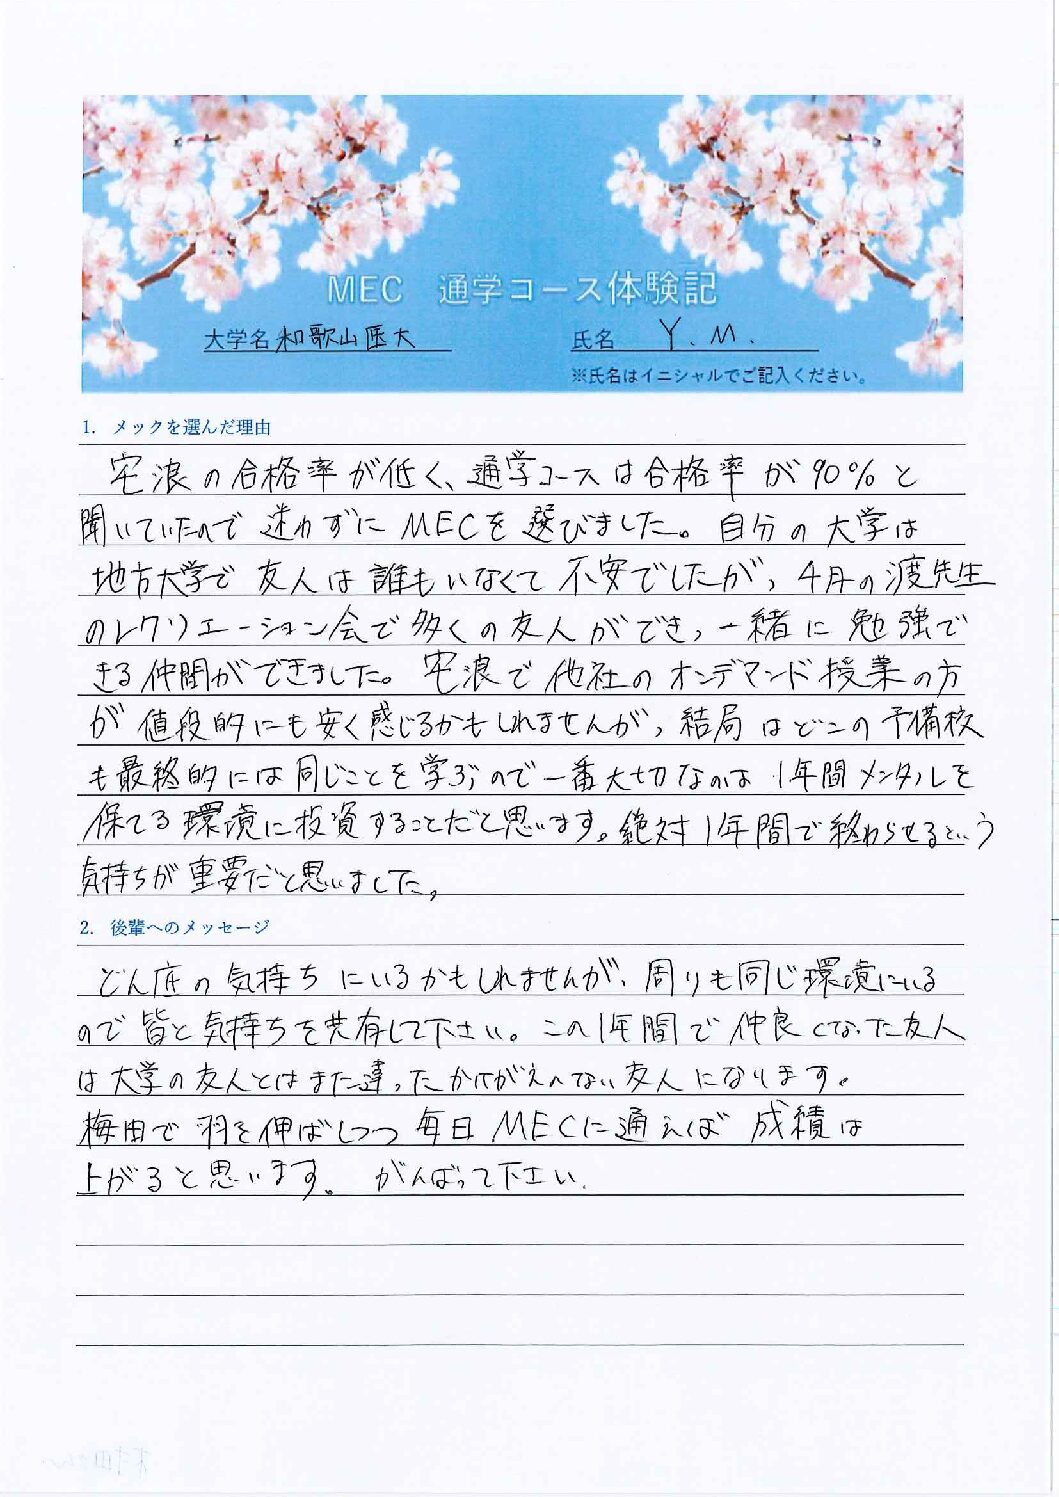 MEC 通学コース体験記
大学名 和歌山医大 氏名 Y.M.
※氏名はイニシャルでご記入ください。
1. メックを選んだ理由
宅浪の合格率が低く、通学コースは合格率が90%と
聞いていたので迷わずにMECを選びました。自分の大学は
地方大学で友人は誰もいなくて不安でしたが、4月の渡先生
のレクリエーション会で多くの友人ができ、一緒に勉強で
きる仲間ができました。宅浪で他社のオンデマンド授業の方
が値段的にも安く感じるかもしれませんが、結局はどこの予備校
も最終的には同じことを学ぶので一番大切なのは1年間メンタルを
保てる環境に投資することだと思います。絶対1年間で終わらせるという
気持ちが重要だと思いました。
2. 後輩へのメッセージ
どん底の気持ちにいるかもしれませんが、周りも同じ環境にいる
ので皆と気持ちを共有して下さい。この1年間で仲良くなった友人
は大学の友人とはまた違ったかけがえのない友人になります。
梅田で羽を伸ばしつつ毎日MECに通えば成績は
上がると思います。がんばって下さい.